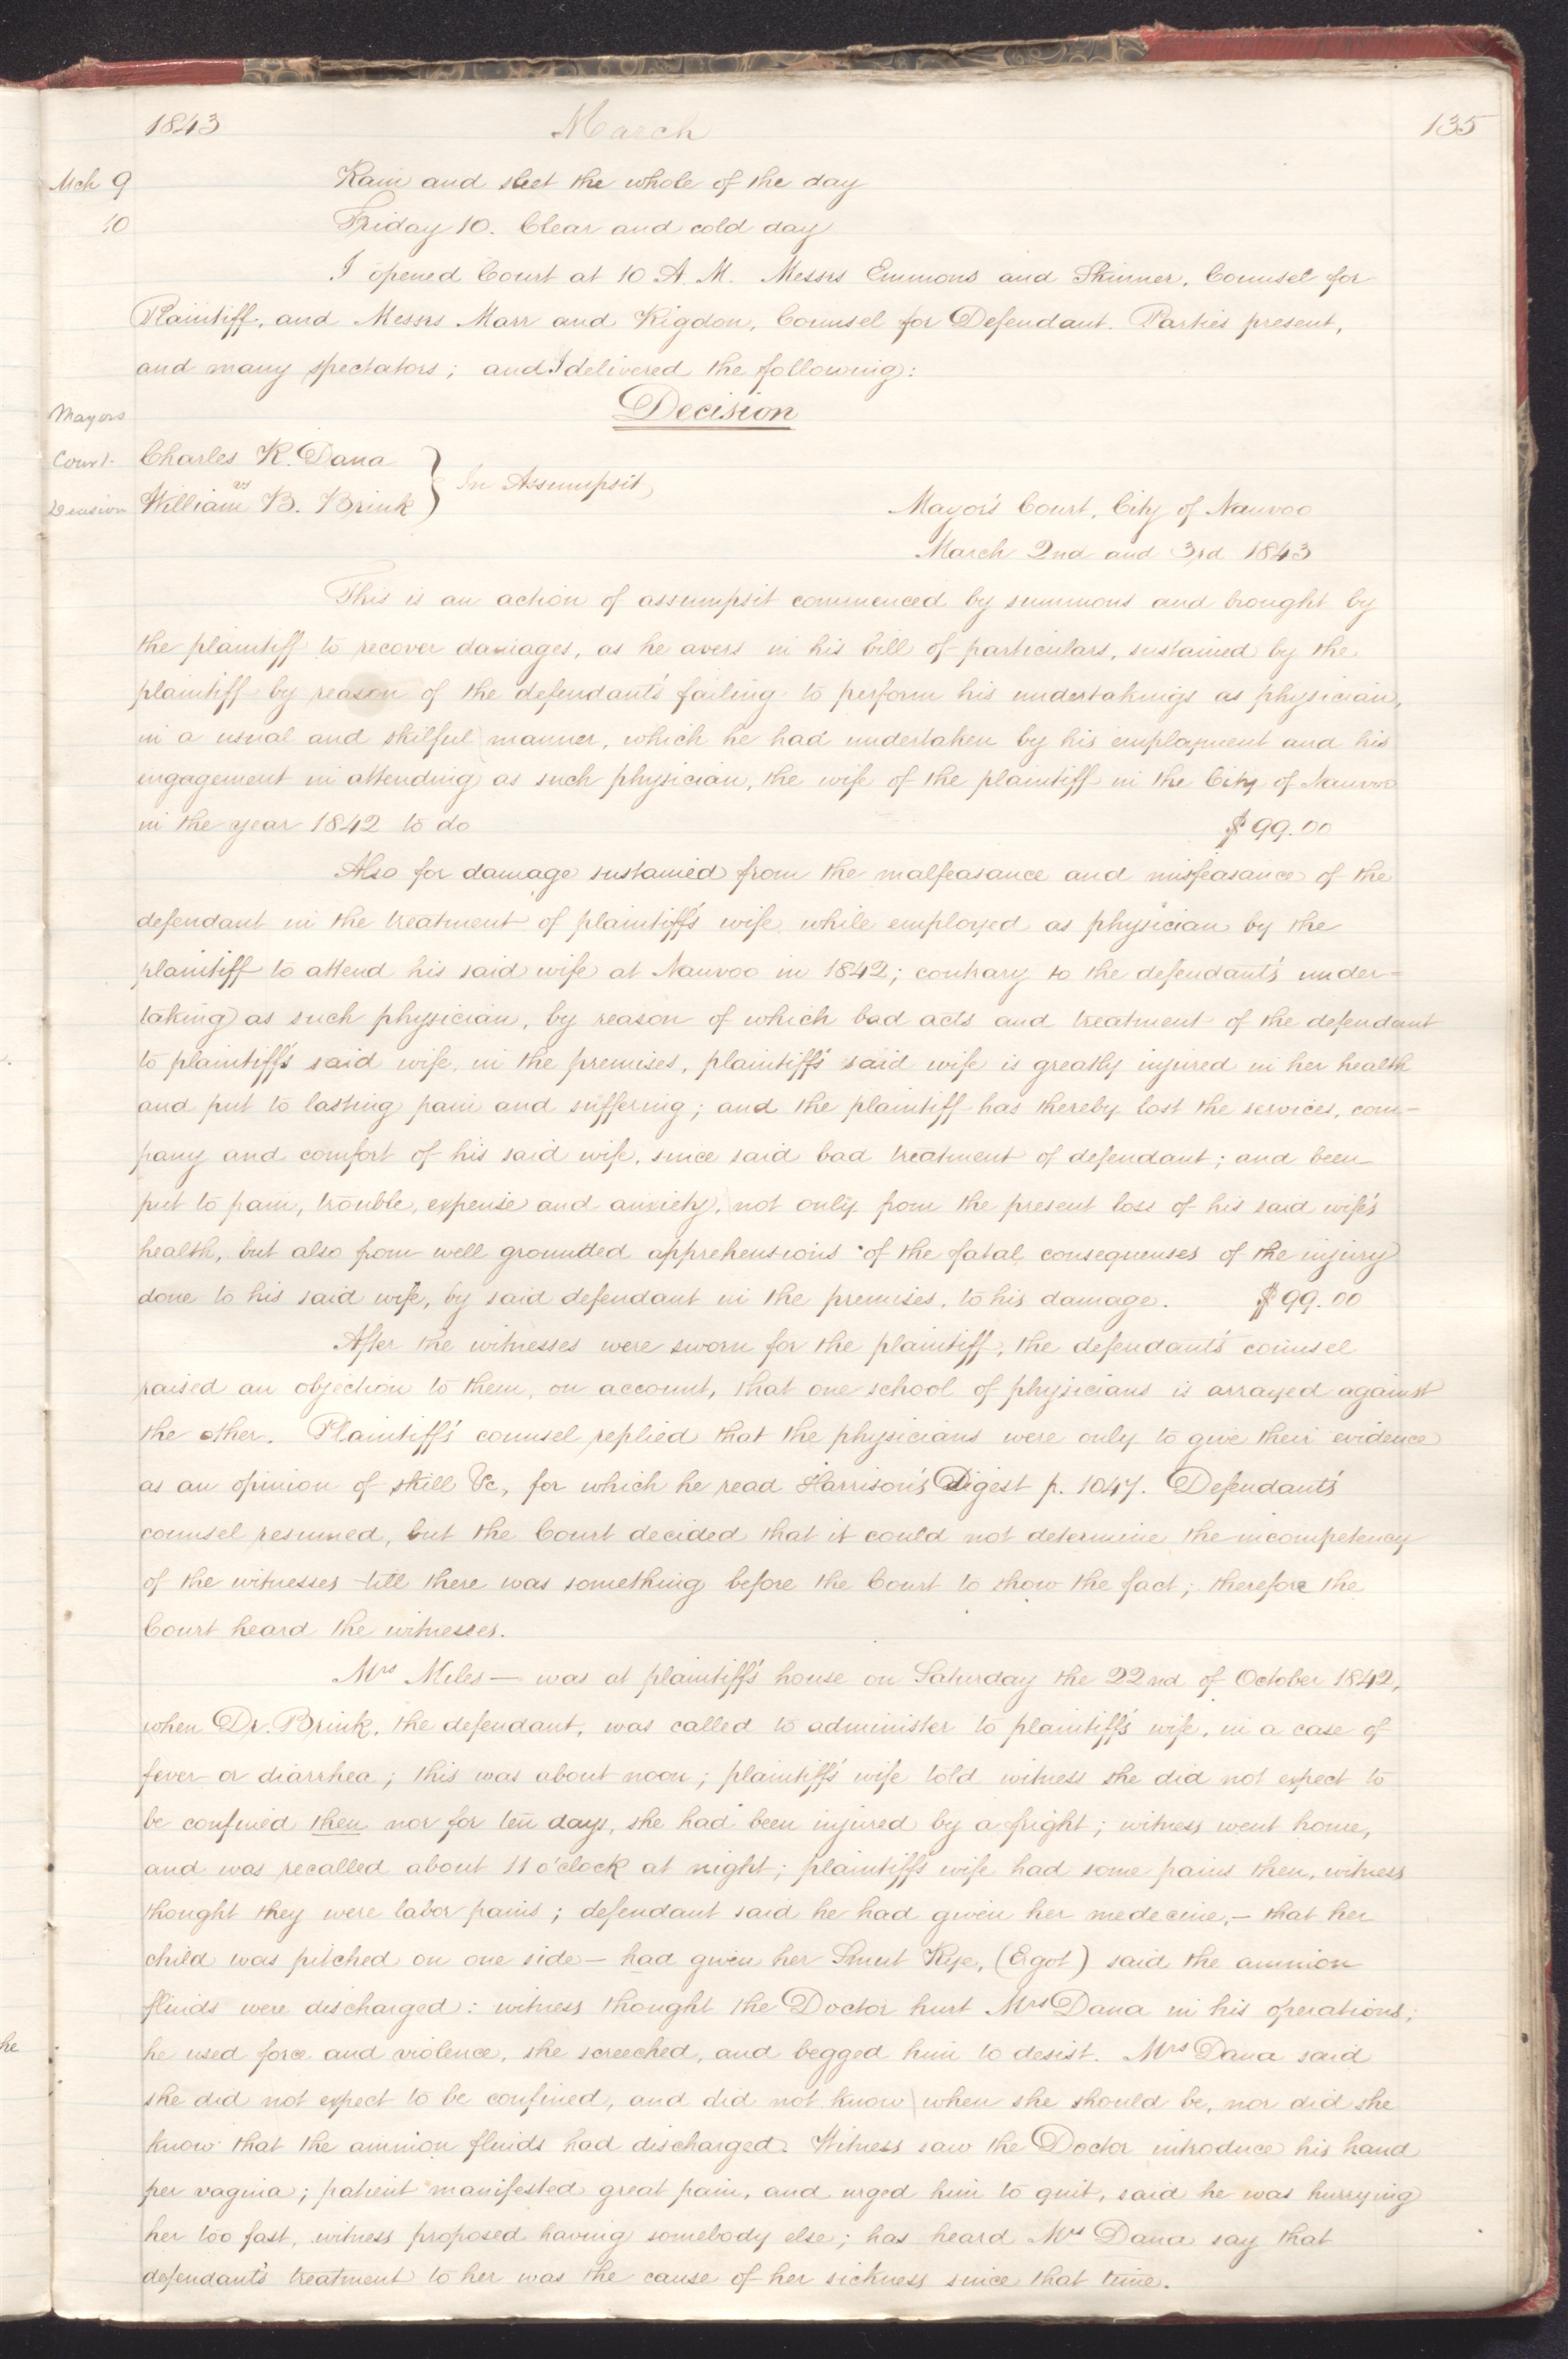 1843 March 135
Mch 9 Rain and sleet the whole of the day
10 Friday 10. Clear and cold day
I opened Court at 10 A. M. Messrs Emmons and Skinner, Counsel for
Plaintiff, and Messrs Marr and Rigdon, Counsel for Defendant. Parties present,
and many spectators; and I delivered the following:
Mayors Decision
Court. Charles R. Dana
vs } In Assumpsit
Decision William B. Brink
Mayor's Court, City of Nauvoo
March 2nd and 3rd 1843
This is an action of assumpsit commenced by summons and brought by
the plaintiff to recover damages, as he avers in his bill of particulars, sustained by the
plaintiff by reason of the defendant's failing to perform his undertakings as physician,
in a usual and skilful manner, which he had undertaken by his employment and his
engagement in attending as such physician, the wife of the plaintiff in the City of Nauvoo
in the year 1842 to do $99.00
Also for damage sustained from the malfeasance and misfeasance of the
defendant in the treatment of plaintiff's wife while employed as physician by the
plaintiff to attend his said wife at Nauvoo in 1842; contrary to the defendant's under=
taking as such physician, by reason of which bad acts and treatment of the defendant
to plaintiff's said wife, in the premises, plaintiff's said wife is greatly injured in her health
and put to lasting pain and suffering; and the plaintiff has thereby lost the services, com-
pany and comfort of his said wife, since said bad treatment of defendant; and been
put to pain, trouble, expense and anxiety, not only from the present loss of his said wife's
health, but also from well grounded apprehensions of the fatal consequenses of the injury
done to his said wife, by said defendant in the premises, to his damage. $99.00
After the witnesses were sworn for the plaintiff, the defendant's counsel
raised an objection to them, on account, that one school of physicians is arrayed against
the other. Plaintiff's counsel replied that the physicians were only to give their evidence
as an opinion of skill &c, for which he read Harrison's Digest p. 1047. Defendant's
counsel resumed, but the Court decided that it could not determine the incompetency
of the witnesses till there was something before the Court to show the fact; therefore the
Court heard the witnesses.
Mrs Miles — was at plaintiff's house on Saturday the 22nd of October 1842,
when Dr. Brink, the defendant, was called to administer to plaintiff's wife, in a case of
fever or diarrhea; this was about noon; plaintiff's wife told witness she did not expect to
be confined then nor for ten days, she had been injured by a fright; witness went home,
and was recalled about 11 o'clock at night; plaintiff's wife had some pains then, witness
thought they were labor pains; defendant said he had given her medecine,— that her
child was pitched on one side — had given her Smut Rye, (Ergot) said the amnion
fluids were discharged: witness thought the Doctor hurt Mrs Dana in his operations;
he used force and violence, she screeched, and begged him to desist. Mrs Dana said
she did not expect to be confined, and did not know when she should be, nor did she
know that the amnion fluids had discharged. Witness saw the Doctor introduce his hand
per vagina; patient manifested great pain, and urged him to quit, said he was hurrying
her too fast, witness proposed having somebody else; has heard Mrs Dana say that
defendant's treatment to her was the cause of her sickness since that time.
he